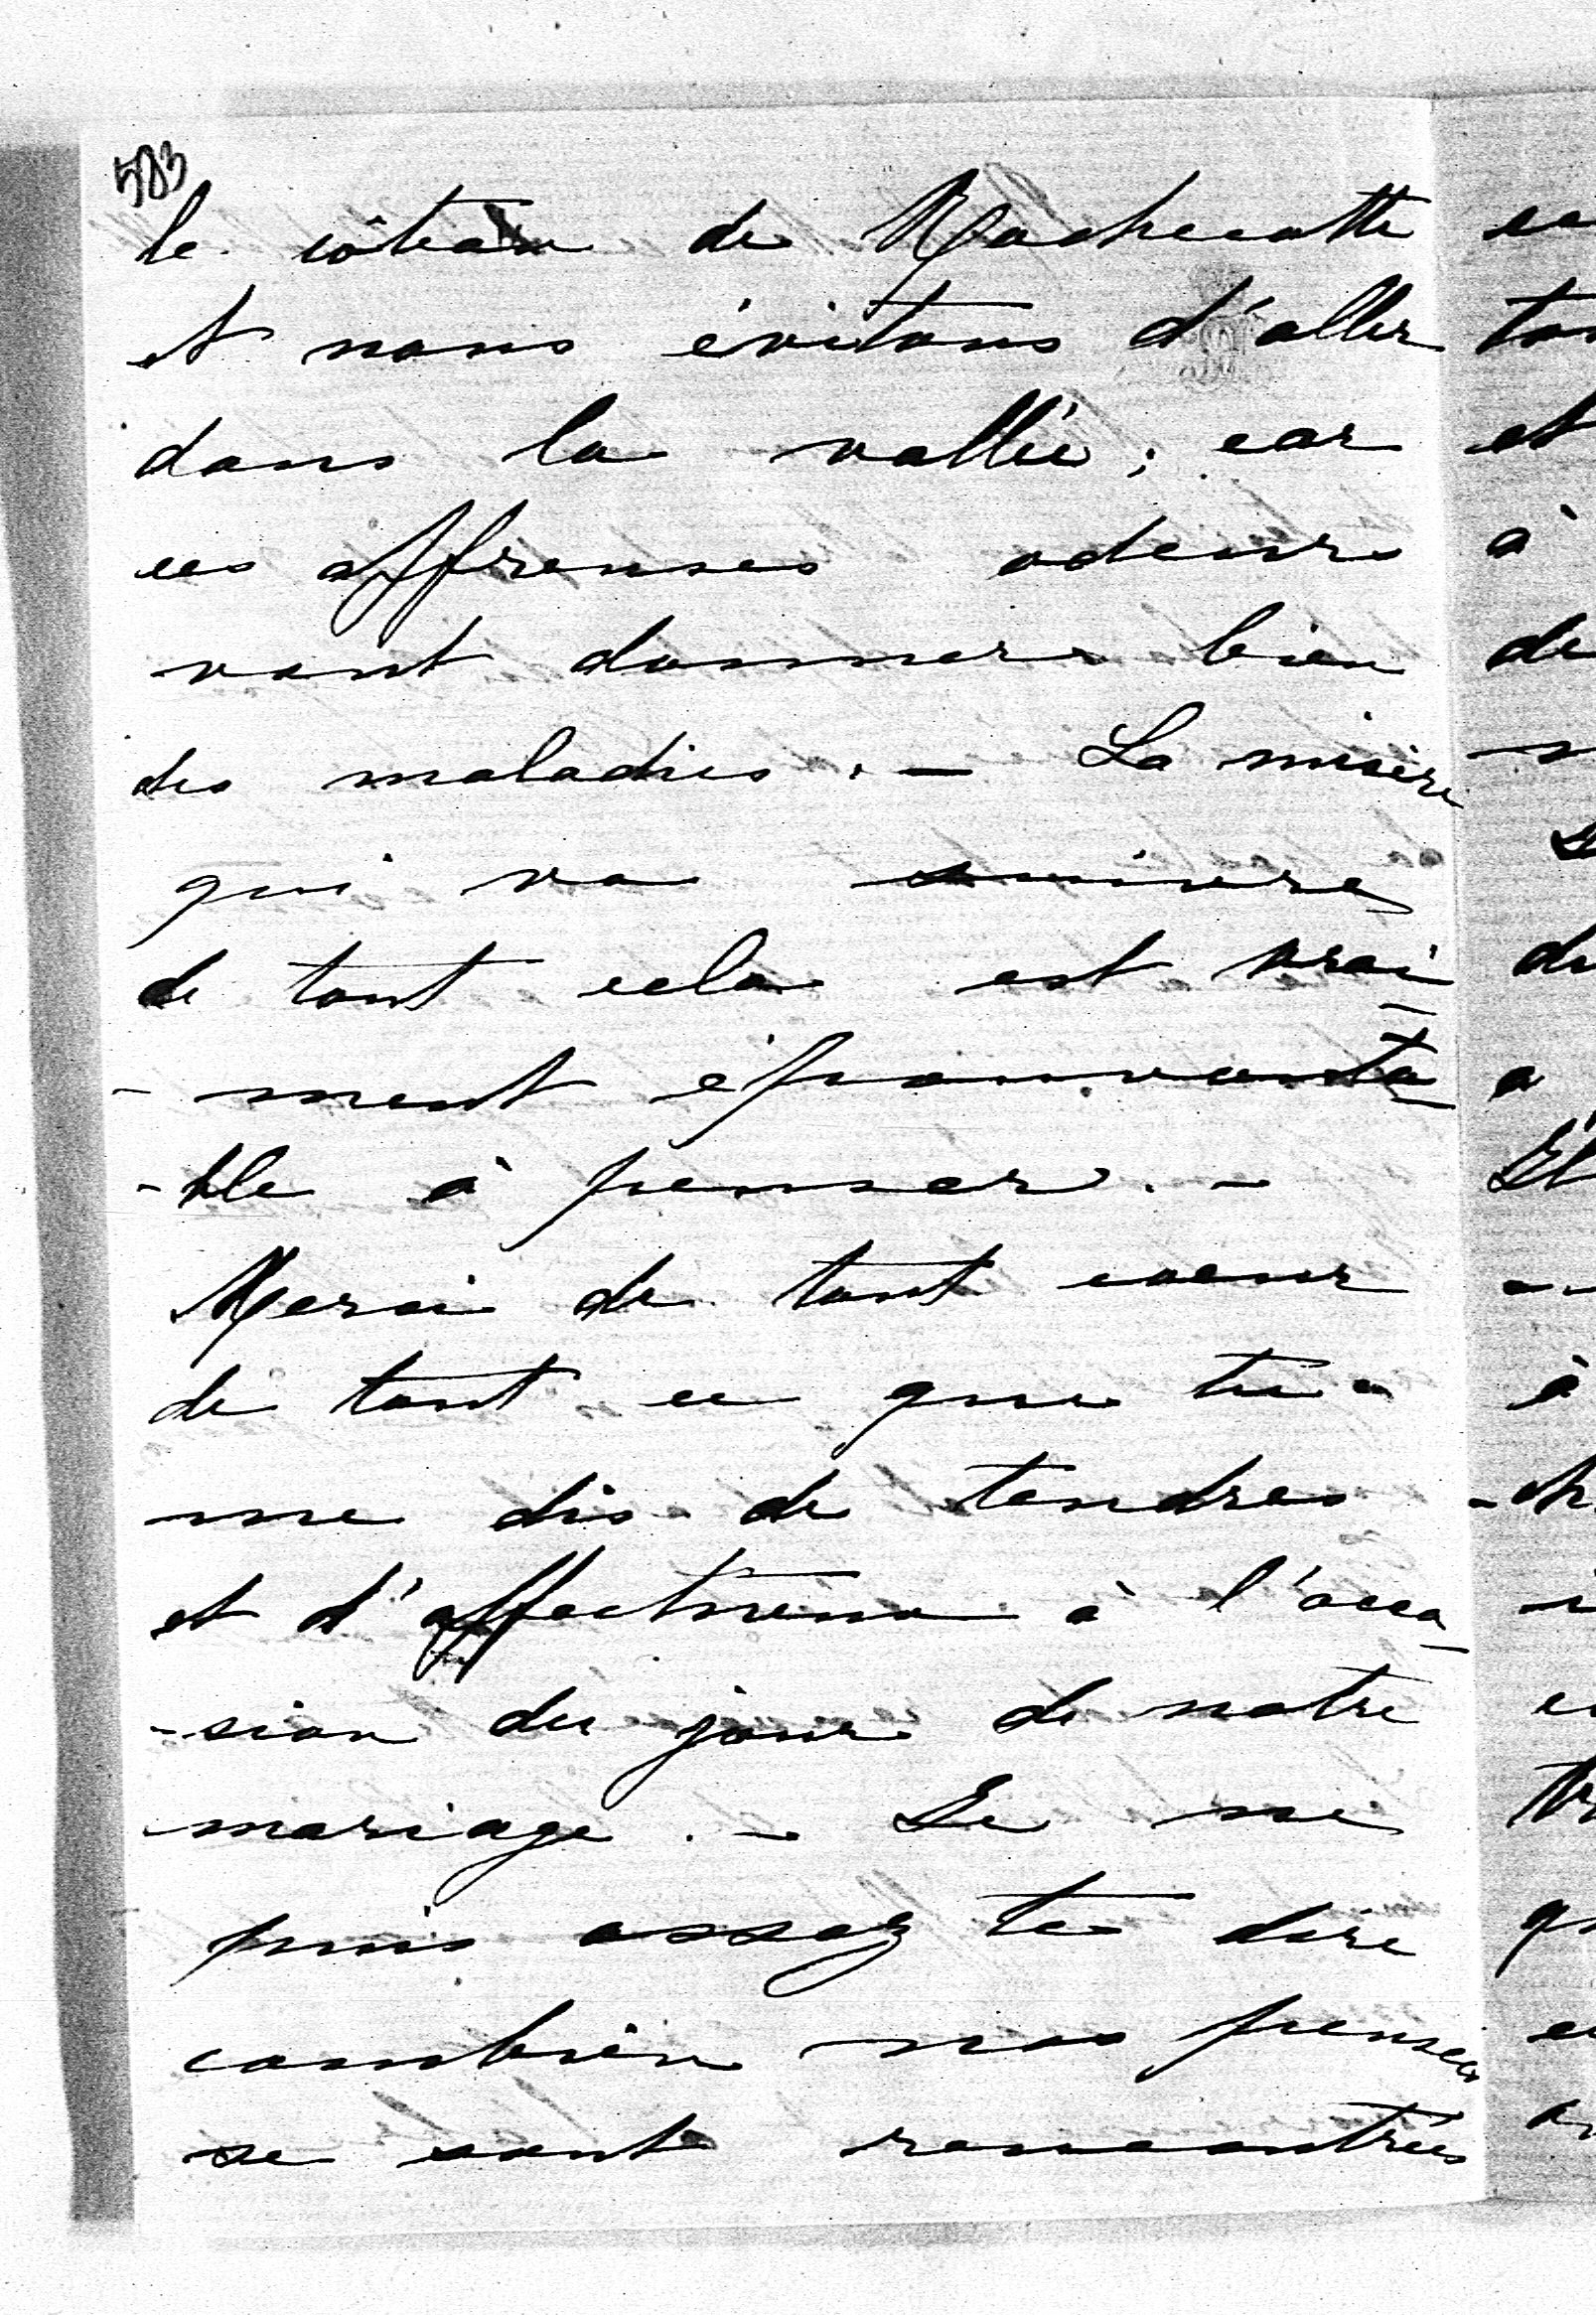 583
le côteau de Rochecotte
et nous évitons d'aller
dans la vallée ; car
ces affreuses odeurs
vont donner bien
des maladies. — La misère
qui va suivre
de tout cela est vrai
- ment épouvanta
- ble à penser. -
Merci de tout coeur
de tout ce que tu
me dis de tendres
et d'affectueux à l'occa
- sion du jour de notre
mariage. - Je ne
puis assez te dire
combien nos pensées
se sont rencontrées